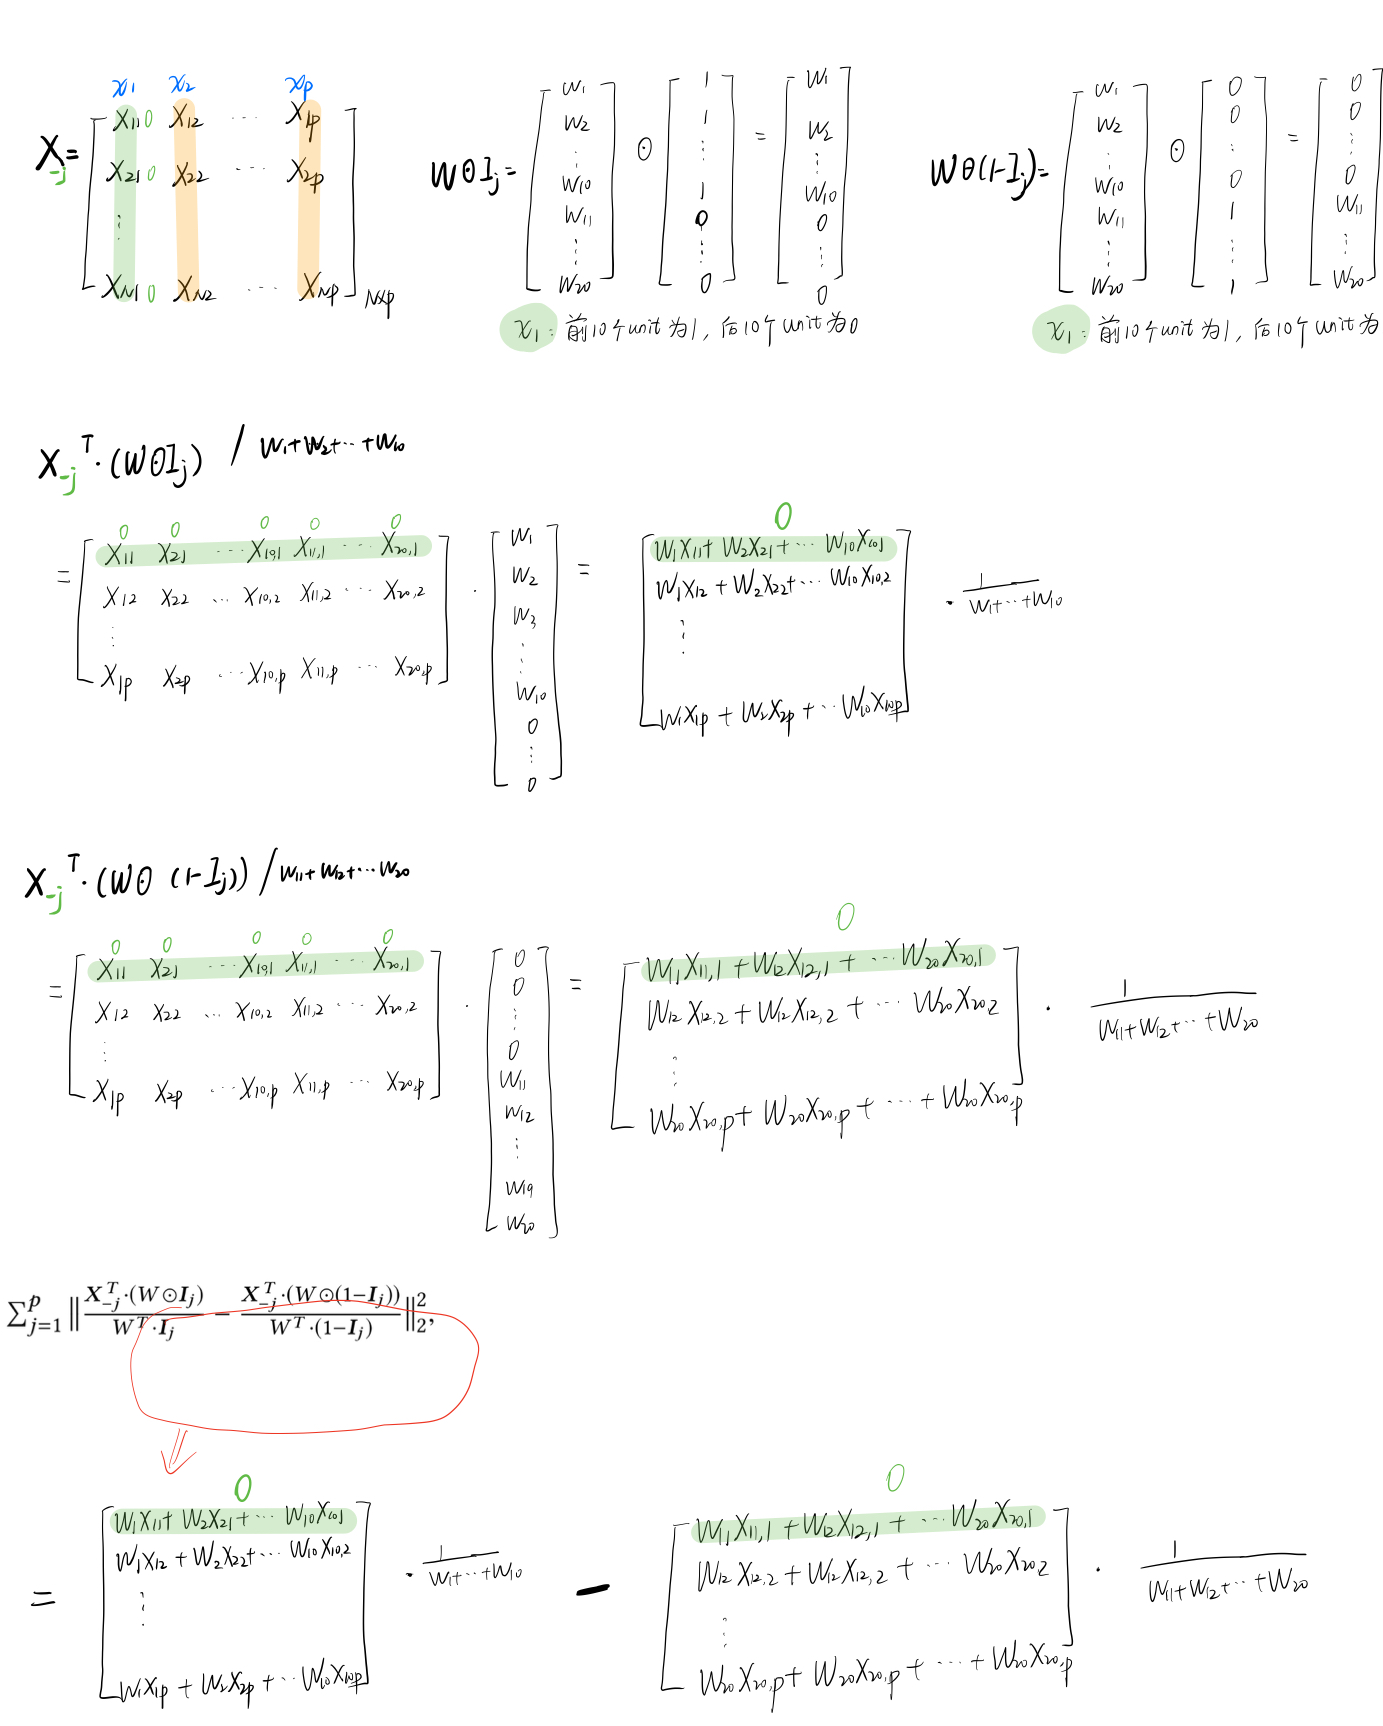 x1 x2 xp
X-j = [ X11 0 X12 ... X1p
X21 0 X22 ... X2p
⋮
XN1 0 XN2 ... XNp ] N×p
W⊙Ij = [ W1 W2 ⋮ W10 W11 ⋮ W20 ] ⊙ [ 1 1 ⋮ 1 0 ⋮ 0 ] = [ W1 W2 ⋮ W10 0 ⋮ 0 0 ]
x1: 前10个unit为1, 后10个unit为0
W⊙(1-Ij) = [ W1 W2 ⋮ W10 W11 ⋮ W20 ] ⊙ [ 0 0 ⋮ 0 1 ⋮ 1 ] = [ 0 0 ⋮ 0 W11 ⋮ W20 ]
x1: 前10个unit为1, 后10个unit为
X-j^T · (W⊙Ij) / W1+W2+...+W10
0 0 0 0 0
= [ X11 X21 ... X10,1 X11,1 ... X20,1
X12 X22 ... X10,2 X11,2 ... X20,2
⋮
X1p X2p ... X10,p X11,p ... X20,p ]
· [ W1 W2 W3 ⋮ W10 0 ⋮ 0 ] =
0
[ W1X11+ W2X21+... W10X10,1
W1X12 + W2X22+... W10X10,2
⋮
W1X1p + W2X2p + ...W10X10p ] · 1 / W1+...+W10
X-j^T · (W⊙ (1-Ij)) / W11+W12+...W20
0 0 0 0 0
= [ X11 X21 ... X10,1 X11,1 ... X20,1
X12 X22 ... X10,2 X11,2 ... X20,2
⋮
X1p X2p ... X10,p X11,p ... X20,p ]
· [ 0 0 ⋮ 0 W11 W12 ⋮ W19 W20 ] =
0
[ W11X11,1 + W12X12,1 + ...W20X20,1
W12X12,2 + W12X12,2 + ... W20X20,2
⋮
W20X20,p + W20X20,p + ... + W20X20,p ] · 1 / W11+W12+...+W20
∑_{j=1}^{p} ‖ X_{-j}^T·(W⊙I_j) / W^T·I_j − X_{-j}^T·(W⊙(1−I_j)) / W^T·(1−I_j) ‖_2^2,
0
= [ W1X11+ W2X21+... W10X10,1
W1X12 + W2X22+... W10X10,2
⋮
W1X1p + W2X2p + ...W10X10p ] · 1 / W1+...+W10
−
0
[ W11X11,1 + W12X12,1 + ...W20X20,1
W12X12,2 + W12X12,2 + ... W20X20,2
⋮
W20X20,p + W20X20,p + ... + W20X20,p ] · 1 / W11+W12+...+W20